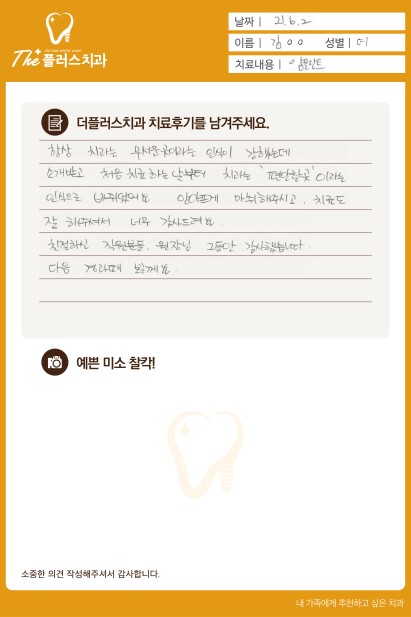 날짜 | 21.6.2
이름 | 김 o o 성별 | 여
치료내용 | 임플란트
The 플러스치과
더플러스치과 치료후기를 남겨주세요.
항상 치과는 무서운곳이라는 인식이 강했는데
소개받고 처음 치료하는 날부터 치과는 "편안한곳" 이라는
인식으로 바뀌었어요. 안아프게 마취해주시고, 치료도
잘 해주셔서 너무 감사드려요.
친절하신 직원분들, 원장님 그동안 감사했습니다.
다음 검진때 뵐게요.
예쁜 미소 찰칵!
소중한 의견 작성해주셔서 감사합니다.
내 가족에게 추천하고 싶은 치과